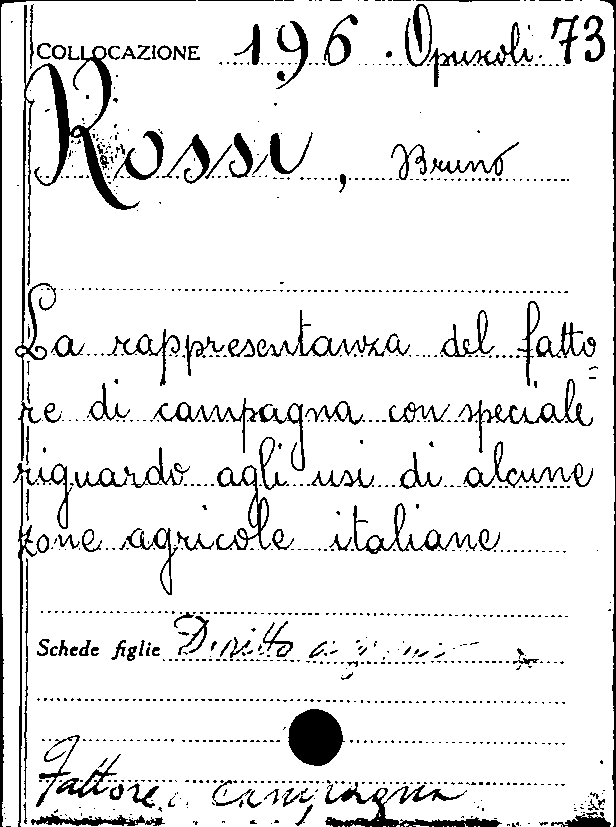 COLLOCAZIONE 196. Opuscoli. 73
Rossi, Bruno
La rappresentanza del fatto=
re di campagna con speciale
riguardo agli usi di alcune
zone agricole italiane
Schede figlie Diritto
Fattore campagna